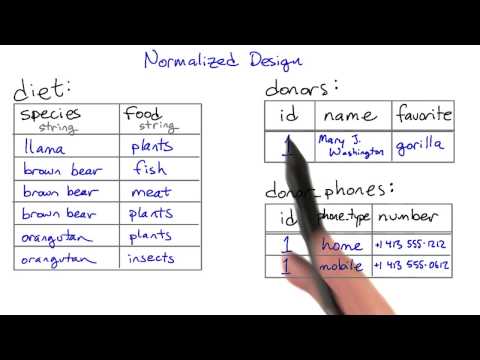 Normalized Design
diet:
species food
string string
llama plants
brown bear fish
brown bear meat
brown bear plants
orangutan plants
orangutan insects
donors:
id name favorite
1 Mary J. Washington gorilla
donor phones:
id phone_type number
1 home +1 413 555-1212
1 mobile +1 413 555-0612